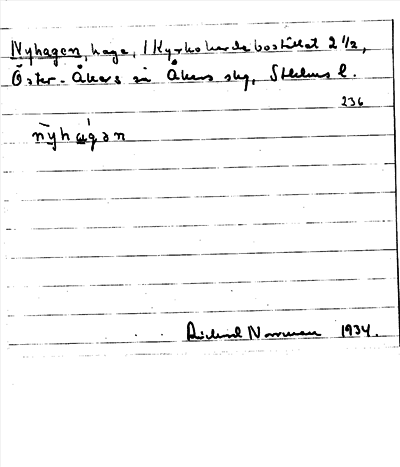 Nyhagen, hage, / Kyrkoherdebostället 2 1/2,
Öster-Åkers sn Åkers skg, Sthlms l.
236
nȳhàgən
Rickard Norrman 1934.